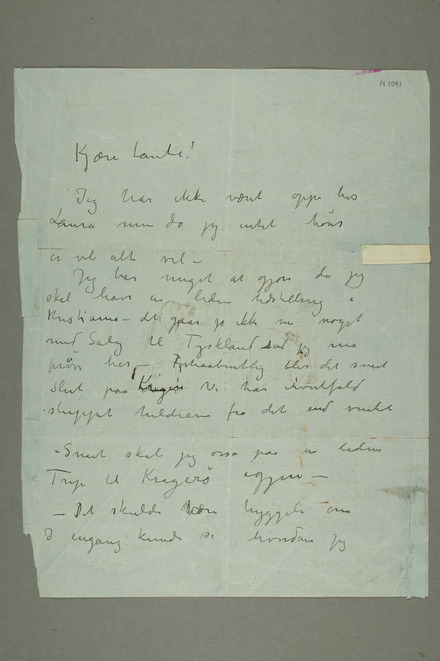 N 1091
Kjære Tante!
Jeg har ikke været oppe hos
Laura men da jeg intet hører
er vel alt vel –
Jeg har meget at gjøre da jeg
skal have en liden Udstilling i
Kristiania – det gaar jo ikke nu noget
med Salg til Tyskland saa jeg maa
prøve her – blir det snart
Slut paa Krigen Vi har ihvertfald
sluppet heldigere fra det end ventet
– Snart skal jeg ogsaa paa en liden
Trip til Kragerø igjen –
– Det skulde være hyggeligt om
I engang kunde se hvordan jeg